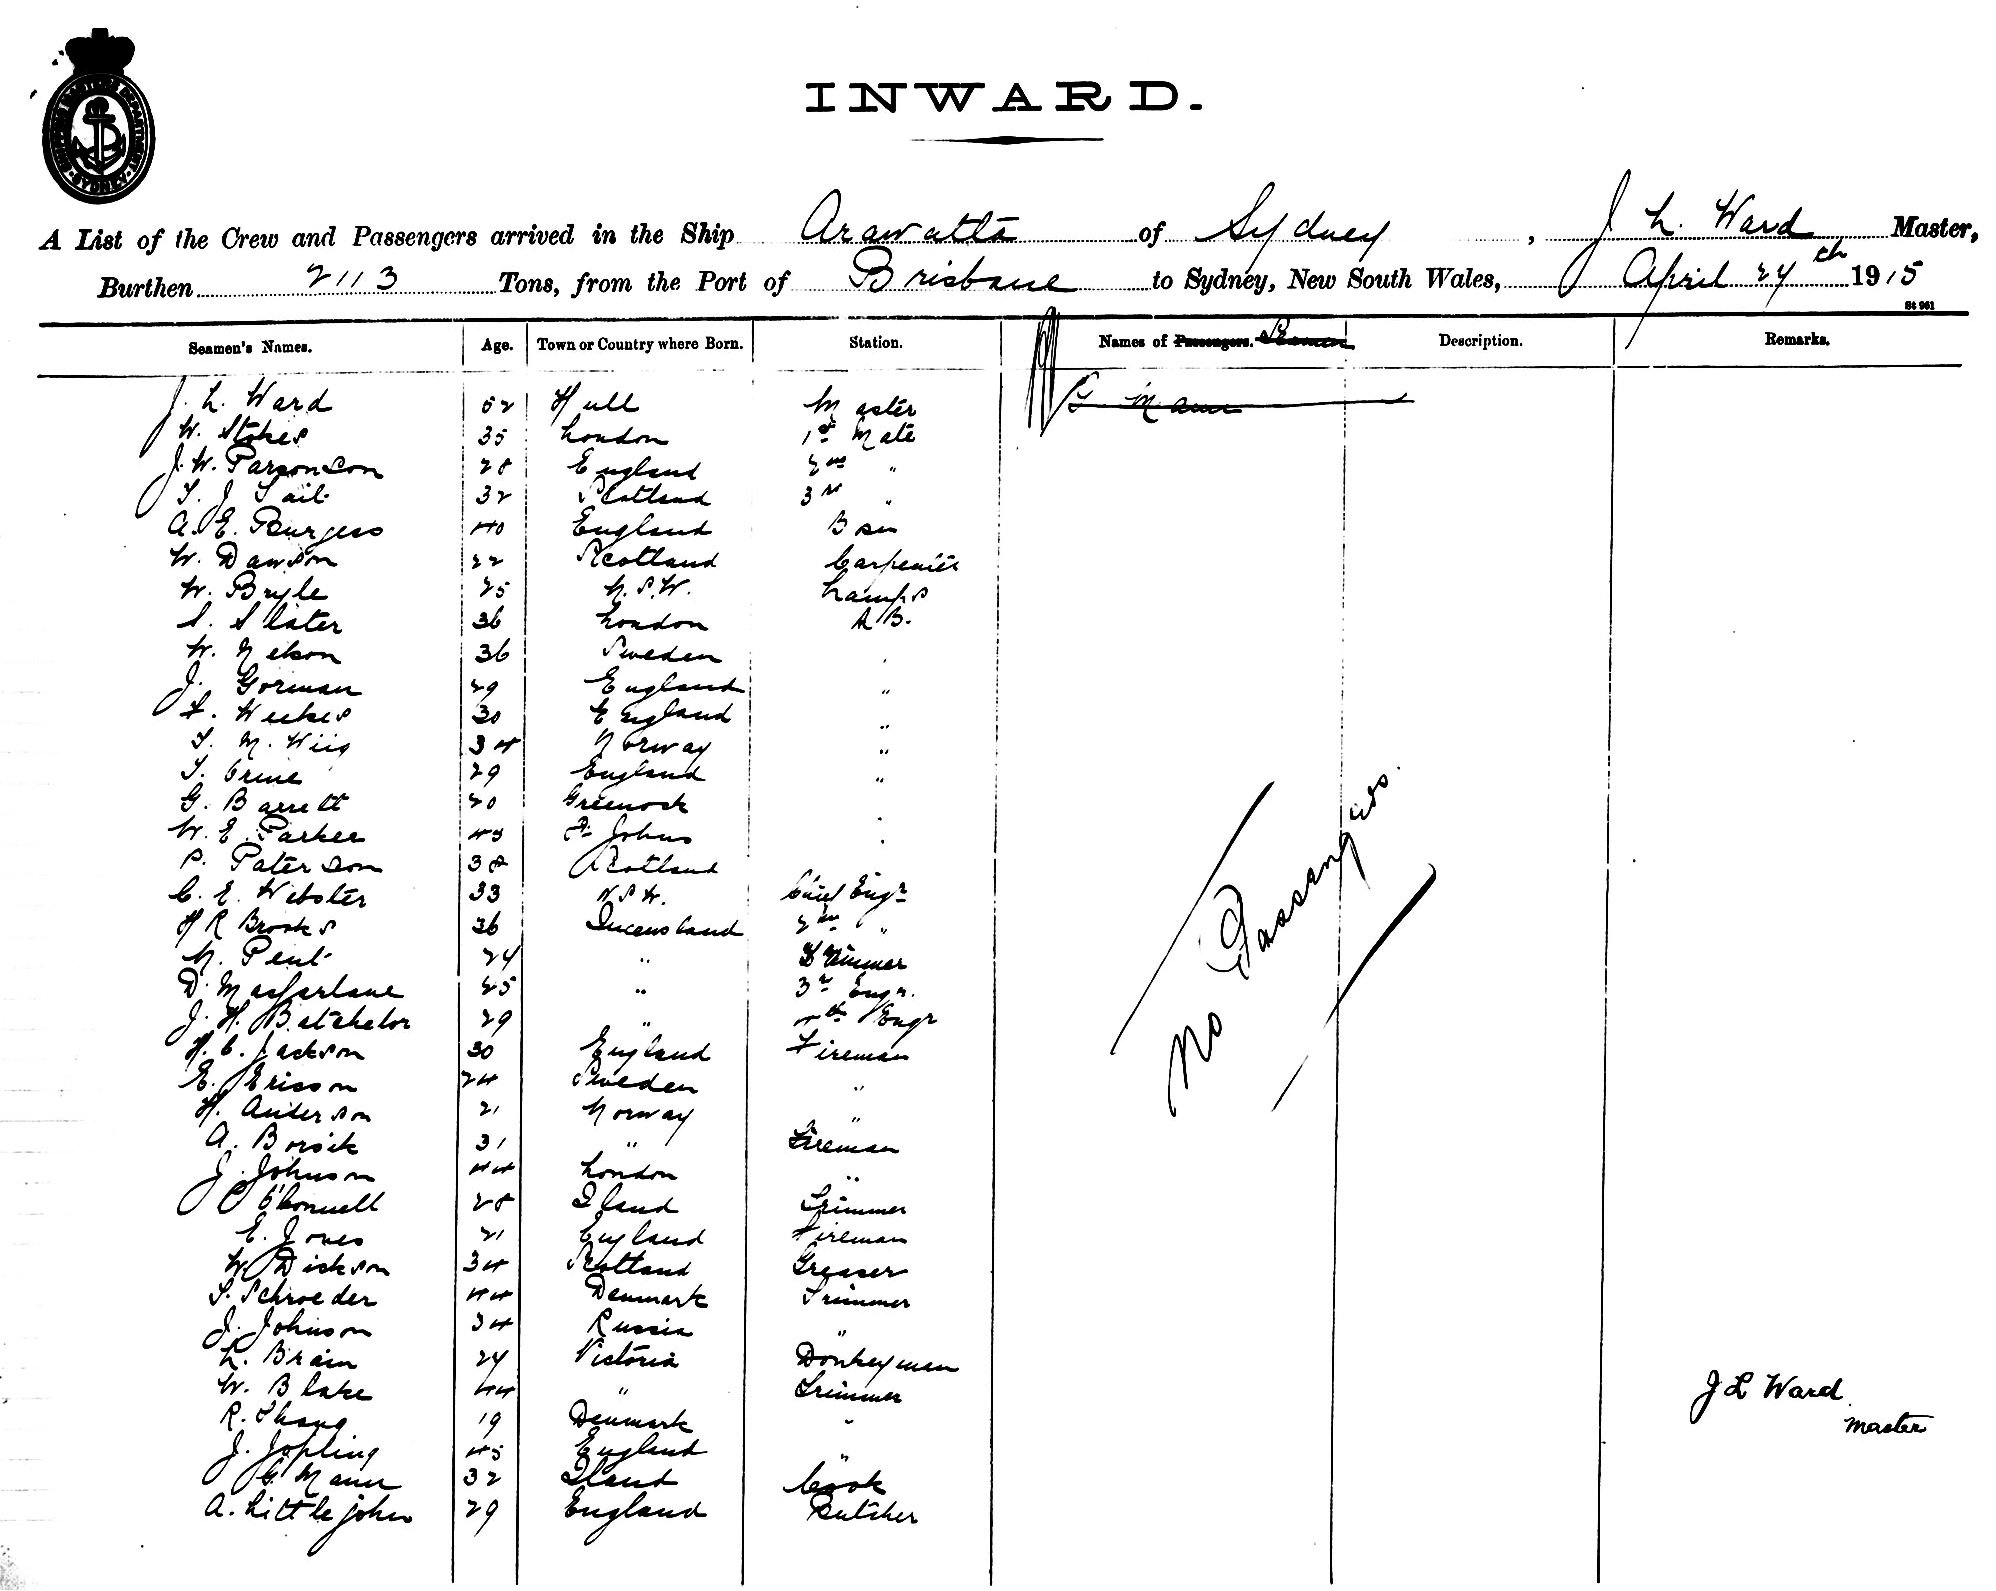 SHIPPING MASTER'S DEPARTMENT SYDNEY
INWARD.
A List of the Crew and Passengers arrived in the Ship Arawatta of Sydney, J L. Ward Master,
Burthen 2113 Tons, from the Port of Brisbane to Sydney, New South Wales, April 24th 1915
St 961
Seamen's Names. Age. Town or Country where Born. Station. Names of Passengers. Seamen Description. Remarks.
J. L. Ward 52 Hull Master G Mann
W. Stokes 35 London 1st Mate
J. W. Parsonson 28 England 2nd "
T. J. Tait 32 Scotland 3rd "
A. E. Burgess 40 England Bsn
W. Dawson 22 Scotland Carpenter
W. Bryle 25 N.S.W. Lamps
S. Slater 36 London A B.
W. Nelson 36 Sweden
J. Gorman 29 England "
F. Weekes 30 England "
T. M. Wiig 34 Norway "
T. Crine 29 England "
G. Barrett 20 Greenock
W. E. Parker 43 St Johns
P. Paterson 38 Scotland
C. E. Webster 33 N.S.W. Chief Engr
H R Brooks 36 Queensland 2nd "
N. Pent 24 " Trimmer
D. Macfarlane 25 " 3rd Engr.
J. H. Batchelor 29 " 4th Engr
H. C. Jackson 30 England Fireman
E. Ericson 24 Sweden "
H. Anderson 21 Norway "
A. Borsik 31 " Fireman
J. Johnson 44 London "
P O'Connell 28 Iland Trimmer
E. Jones 21 England Fireman
W. Dickson 34 Scotland Greaser
S. Schroeder 44 Denmark Trimmer
J. Johnson 34 Russia "
L. Brain 24 Victoria Donkeyman
W. Blake 44 " Trimmer
R. Thang 19 Denmark "
J. Jopling 45 England "
G. Mann 32 Iland Cook
A. Littlejohn 29 England Butcher
No Passengers.
J L Ward
Master